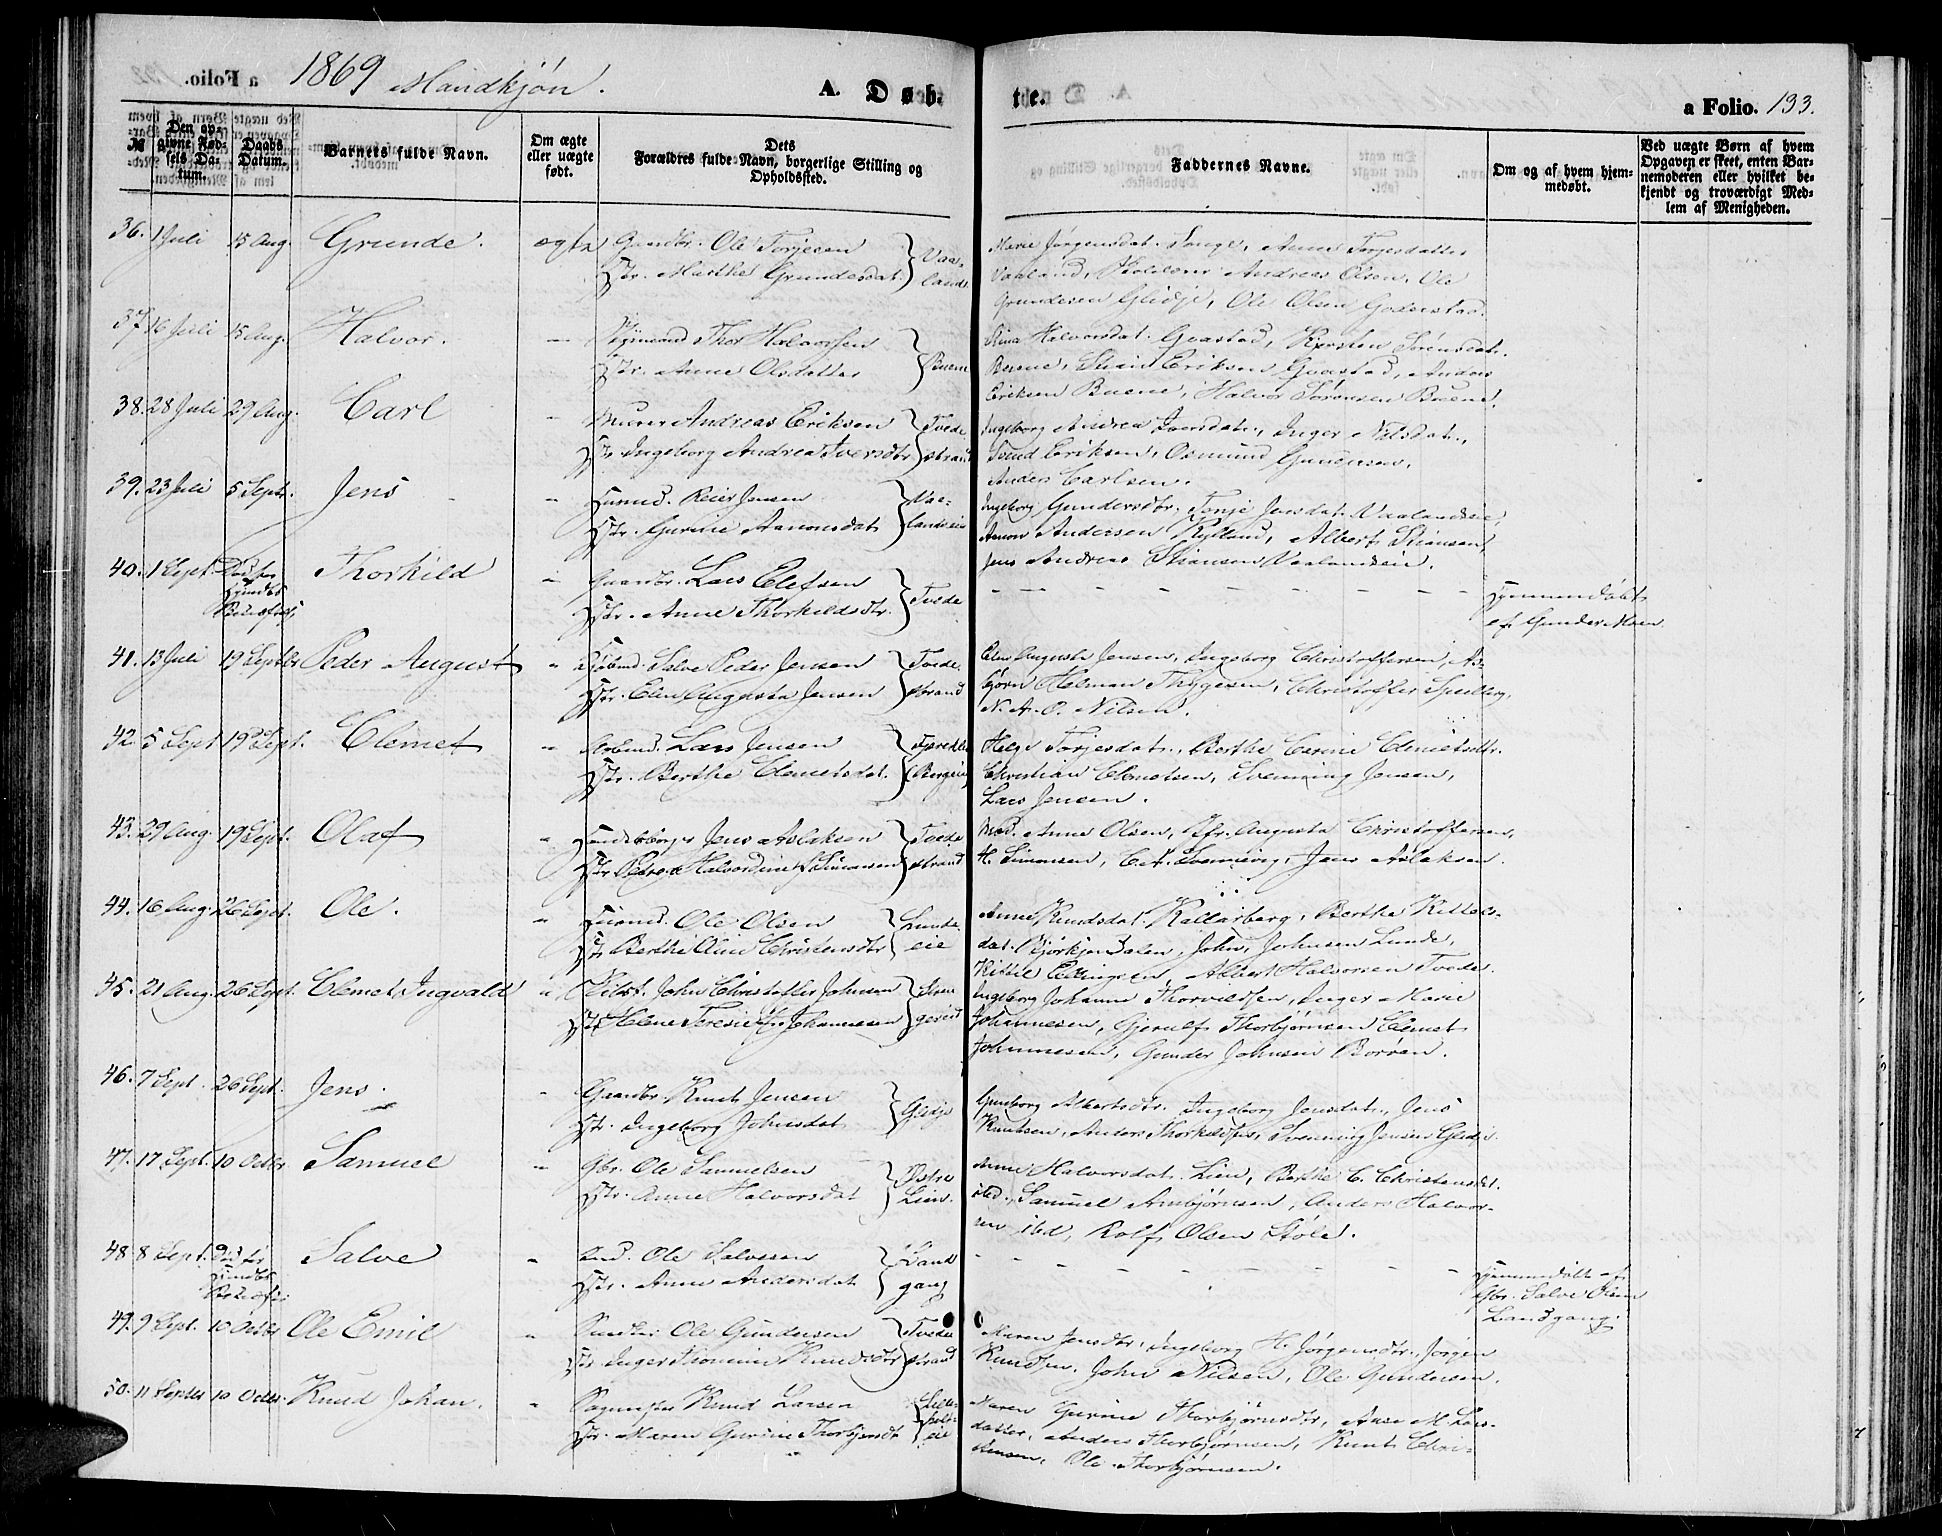 1869 Mandkjøn.
A. Døb- te.
a Folio. 133.
№
Den op-
givne Fød-
sels Da-
tum.
Daabs
Datum.
Barnets fulde Navn.
Om ægte
eller uægte
født.
Dets
Forældres fulde Navn, borgerlige Stilling og
Opholdssted.
Faddernes Navne.
Om og af hvem hjem-
medøbt.
Ved uægte Børn af hvem
Opgaven er skeet, enten Bar-
nemoderen eller hvilket be-
kjendt og troværdigt Med-
lem af Menigheden.
36. 1 Juli 15 Aug. Grunde. ægte Gaardbr. Ole Torjesen
Hstr. Marthe Grundesdat. Vaa-
land.
Marie Jørgensdat. Songe, Anne Torjesdatter
Vaaland, Andreas Olsen, Ole
Grundesen Glidje, Ole Olsen Goderstad.
37. 16 Juli 15 Aug. Halvor. Thor Halvorsen
Hstr. Anne Olsdatter Buene
Stina Halvorsdat. Gvastad, Kjersten Sørensdat.
Buene, Stian Eriksen Gvastad, Anders
Eriksen Buene, Halvor Sørensen Buene.
38. 28 Juli 29 Aug. Carl " Murer Andreas Eriksen
Hstr. Ingeborg Andrea Iversdtr Tvede-
strand
Ingeborg Andrea Iversdat., Inger Nilsdat.,
Svend Eriksen, Osmund Gundersen,
Anders Carlsen.
39. 23 Juli 5 Sept. Jens " Husmd. Reier Jensen
Hstr. Gurine Aanonsdat. Vaa-
landseie
Ingeborg Gundersdtr. Tonje Jensdat. Vaalandseie,
Aanon Andersen Rylland, Albert Stiansen,
Jens Andreas Stiansen Vaalandseie.
40. 1 Sept. Død før
Thorkild " Gaardbr. Lars Elefsen
Hstr. Anne Thorkildsdtr. Tvede
Hjemmedøbt
af Gunder Moen
41. 13 Juli 19 Septbr Peder August " Salve Peder Jensen
Hstr. Elen Augusta Jensen Tvede-
strand
Elen Augusta Jensen, Ingeborg Christoffersen, As-
bjørn Helman Thygesen, Christoffer Spilling,
N. A. O. Nilsen.
42. 5 Sept 19 Sept. Clemet " Lars Jensen
Hstr. Berthe Clemetsdat.
Helje Torjesdat., Berthe Carine Clemetsdtr.
Christian Clemetsen, Svenning Jensen,
Lars Jensen.
43. 29 Aug. 19 Sept. Olaf " Jens Aslaksen
Hstr. Petrea Halvordine Simonsen Tvede-
strand
Mad. Anne Olsen, Jfr. Augusta Christoffersen,
H. Simonsen, C. A. Svenning, Jens Aslaksen.
44. 16 Aug. 26 Sept. Ole. " Husmd. Ole Olsen
Hstr Berthe Oline Christensdtr Lunde-
eie
Anne Knudsdat. Kallarberg, Berthe Kittels-
dat. Bjørkjendalen, John Johnsen Lunde,
Kittil Ellingsen, Albert Halvorsen Tvede.
45. 21 Aug. 26 Sept. Clemet Ingvald " John Christoffer Johnsen
Hstr Helene Teresie Johannesen
Ingeborg Johanne Thorvildsen, Inger Marie
Johannesen, Gjerulf Thorbjørnsen, Clemet
Johannesen, Gunder Johnsen Borøen.
46. 7 Sept. 26 Sept. Jens. " Gaardbr. Knut Jensen
Hstr. Ingeborg Johnsdat Glidje
Gunborg Albertsdtr. Ingeborg Jensdat., Jens
Knutsen, Anders Thorkildsen, Svenning Jensen Glidje.
47. 17 Sept. 10 Octbr Samuel " Gbr. Ole Samuelsen
Hstr. Anne Halvorsdat Østre
Lien.
Anne Halvorsdat. Lien, Berthe C. Christensdat.
isted., Samuel Arnbjørnsen, Anders Halvor-
sen isted, Rolf Olsen Støle.
48. 8 Sept. Død før
Salve " Ole Salvesen
Hstr. Anne Andersdat Land-
gang
Hjemmedøbt af
Gbr. Salve Olsen
Landgang.
49. 9 Sept. 10 Octbr Ole Emil " Ole Gundersen
Hstr. Inger Thomine Knudsdtr Tvede-
strand
Maren Jensdtr., Ingeborg H. Jørgensdtr., Jørgen
Knudsen, John Nilsen, Ole Gundersen.
50. 11 Septbr 10 Octbr. Knud Johan. " Knud Larsen
Hstr. Maren Gurine Thorbjørnsdt
Maren Gurine Thorbjørnsdtr, Anse M. Lars-
datter, Anders Thorbjørnsen, Knut Chri-
stensen, Ole Thorbjørnsen.